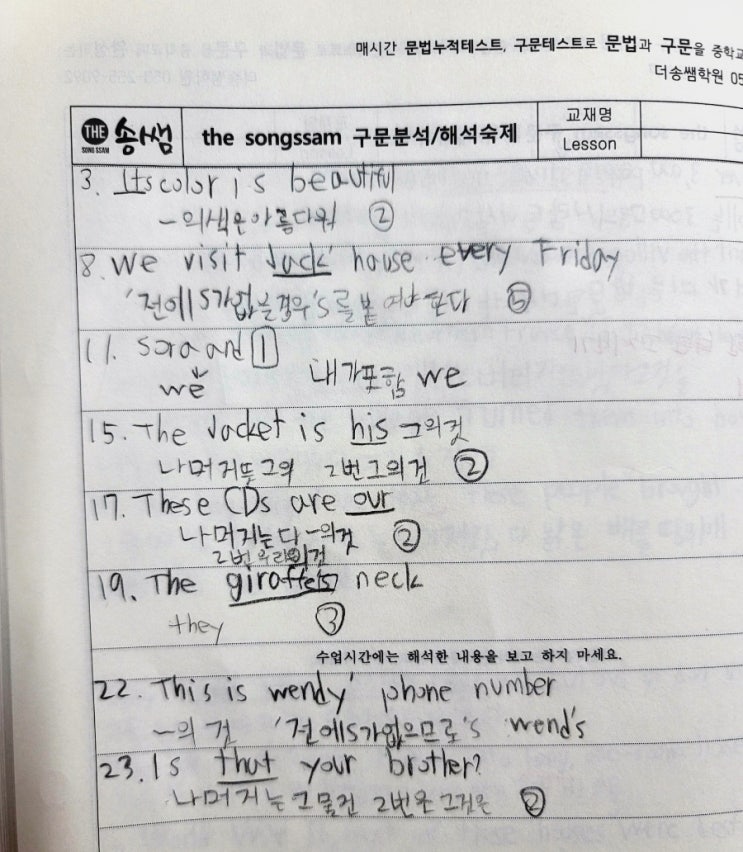 매시간 문법누적테스트, 구문테스트로 문법과 구문을 중학교
더송쌤학원 05
THE SONG SSAM 송쌤 the songssam 구문분석/해석숙제 교재명
Lesson
3. Its color is beautiful
~의 색은 아름다워 ②
8. We visit Jack' house every Friday
'전에 S가 없을 경우 's를 붙여야 한다 ⑤
11. Sora and I
we 내가 포함 we
15. The Jacket is his 그의 것
나머거뜻 그의 2번 그의 것 ②
17. These CDs are our
나머지는 다 ~의 것 ②
2번 우리의 것
19. The giraffe's neck
they ③
수업시간에는 해석한 내용을 보고 하지 마세요.
22. This is wendy' phone number
~의 것 '전에 S가 없으므로 's wend's
23. Is that your brother?
나머지는 그 물건 2번은 그것은 ②